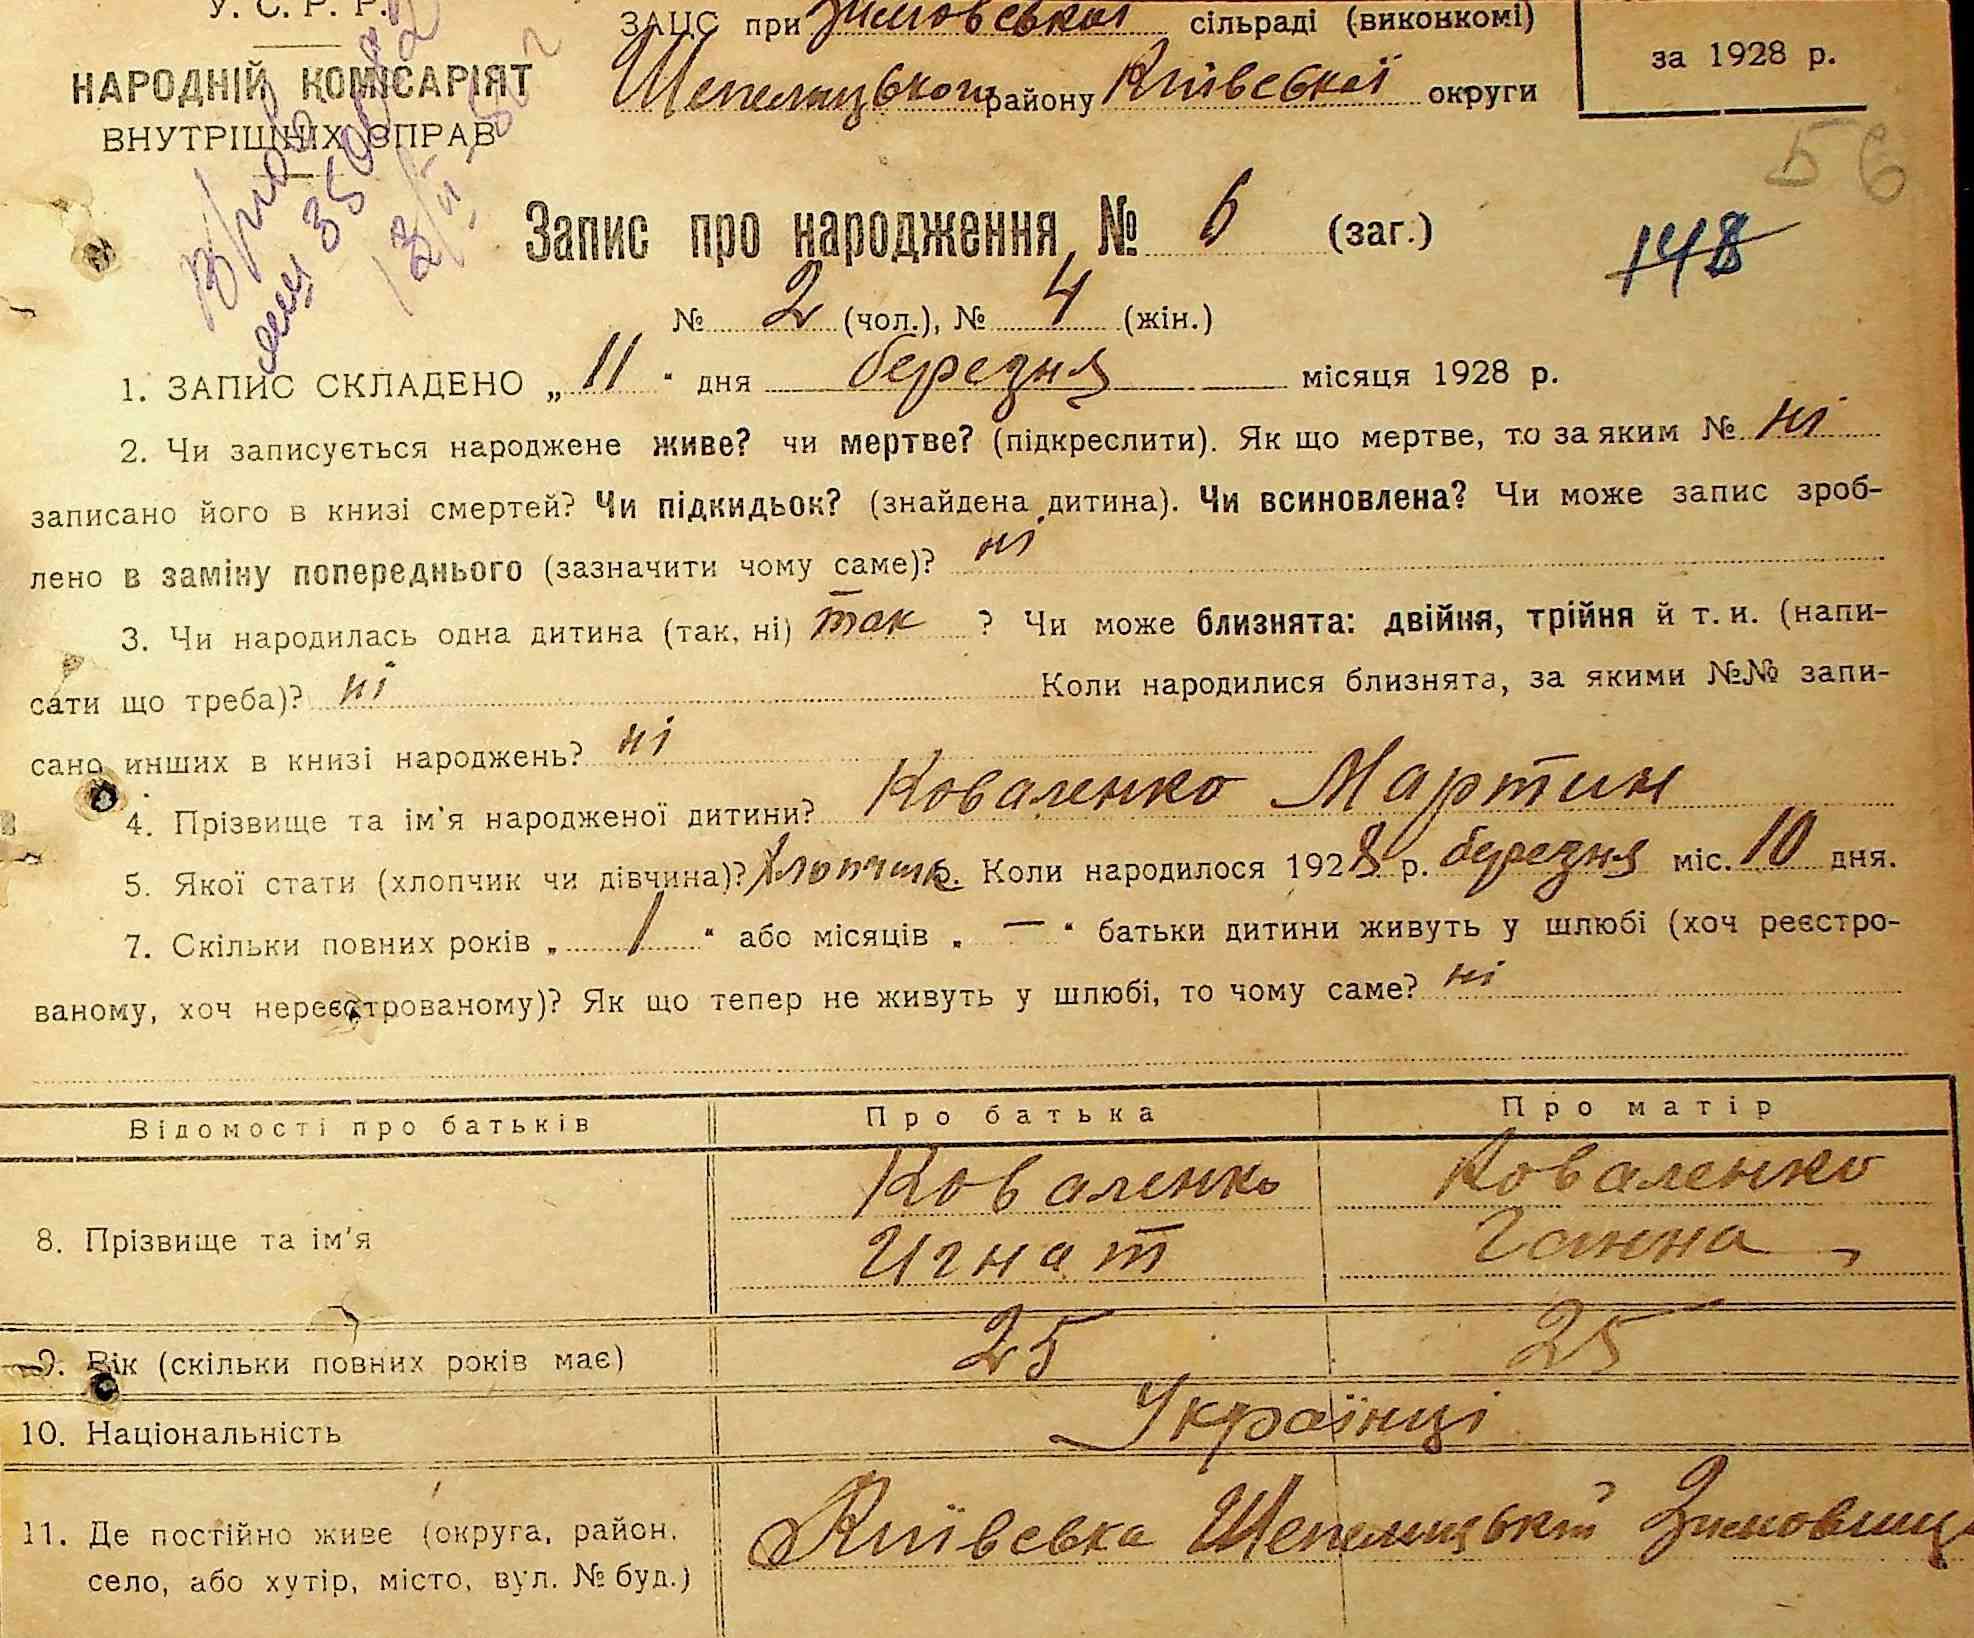 У. С. Р. Р.
ЗАЦС при Зимовської сільраді (виконкомі)
за 1928 р.
НАРОДНІЙ КОМІСАРІЯТ
Шепелицького району Київської округи
ВНУТРІШНІХ СПРАВ
56
Запис про народження № 6 (заг.)
148
№ 2 (чол.), № 4 (жін.)
1. ЗАПИС СКЛАДЕНО „ 11 “ дня березня місяця 1928 р.
2. Чи записується народжене живе? чи мертве? (підкреслити). Як що мертве, то за яким № ні
записано його в книзі смертей? Чи підкидьок? (знайдена дитина). Чи всиновлена? Чи може запис зроб-
лено в заміну попереднього (зазначити чому саме)? ні
3. Чи народилась одна дитина (так, ні) так ? Чи може близнята: двійня, трійня й т. и. (напи-
сати що треба)? ні Коли народилися близнята, за якими №№ запи-
сано инших в книзі народжень? ні
4. Прізвище та ім'я народженої дитини? Коваленко Мартин
5. Якої стати (хлопчик чи дівчина)? Хлопчик. Коли народилося 1928 р. березня міс. 10 дня.
7. Скільки повних років „ 1 “ або місяців „ — “ батьки дитини живуть у шлюбі (хоч реєстро-
ваному, хоч нереєстрованому)? Як що тепер не живуть у шлюбі, то чому саме? ні
Відомості про батьків Про батька Про матір
Коваленко Коваленко
8. Прізвище та ім'я
Игнат Ганна
9. Вік (скільки повних років має) 25 25
10. Національність Українці
11. Де постійно живе (округа, район, Київська Шепелицький
село, або хутір, місто, вул. № буд.)